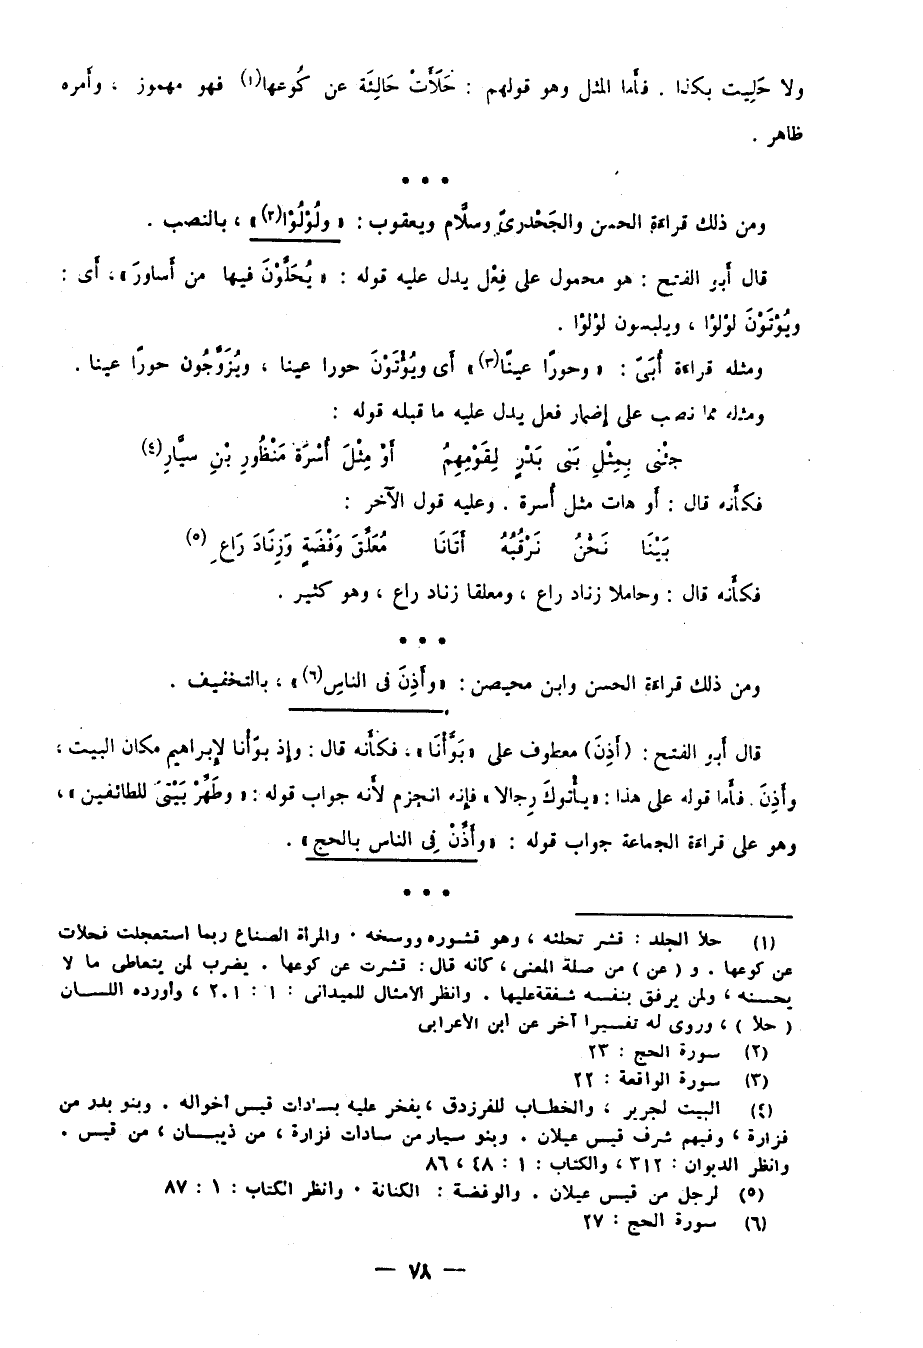 ولا حَلِيت بكذا . فأَما المثل وهو قولهم : حَلَأَتْ حَالِئَة عن كُوعها(١) فهو مهموز ، وأَمره
ظاهر .
• • •
ومن ذلك قراءة الحسن والجَحْدرىّ وسلَّام ويعقوب : « ولُؤلُؤا(٢)» ، بالنصب .
قال أَبو الفتح : هو محمول على فِعْل يدل عليه قوله : « يُحَلَّوْنَ فيها من أَساورَ » ، أَى :
ويُؤتَوْنَ لؤلؤا ، ويلبسون لؤلؤا .
ومثله قراءة أُبَىّ : « وحورًا عينًا(٣)» أَى ويُؤْتَوْنَ حورا عينا ، ويُزَوَّجُون حورًا عينا .
ومثله مما نصب على إِضمار فعل يدل عليه ما قبله قوله :
جِئْنى بِمِثْلِ بَنى بَدْرٍ لِقَوْمِهِمُ أَوْ مِثْلَ أُسْرَة مَنْظُورِ بْنِ سيَّارِ(٤)
فكأَنه قال : أَو هات مثل أُسرة . وعليه قول الآخر :
بَيْنَا نَحْنُ نَرْقُبُهُ أَتَانَا مُعَلِّقَ وَفْضَةٍ وَزِنَادَ رَاعِ (٥)
فكأَنه قال : وحاملا زناد راع ، ومعلقا زناد راع ، وهو كثير .
• • •
ومن ذلك قراءة الحسن وابن محيصن : «وأَذِنَ فى الناسِ(٦)» ، بالتخفيف .
قال أَبو الفتح : (أَذِنَ) معطوف على «بَوَّأْنَا» ، فكأَنه قال : وإِذ بوّأنا لإِبراهيم مكان البيت ،
وأَذِنَ . فأَما قوله على هذا : «يأْتوكَ رِجالا» فإِنه انجزم لأَنه جواب قوله : « وطَهِّرْ بَيْتىَ للطائفين » ،
وهو على قراءة الجماعة جواب قوله : «وأَذِّنْ فِى الناس بالحج» .
• • •
(١) حلا الجلد : قشر تحلئه ، وهو قشوره ووسخه . والمرأة الصناع ربما استعجلت فحلات
عن كوعها . و ( عن ) من صلة المعنى ، كانه قال : قشرت عن كوعها . يضرب لمن يتعاطى ما لا
يحسنه ، ولمن يرفق بنفسه شفقة عليها . وانظر الامثال للميدانى : ١ : ٢٠١ ، وأورده اللسان
( حلا ) ، وروى له تفسيرا آخر عن ابن الأعرابى
(٢) سورة الحج : ٢٣
(٣) سورة الواقعة : ٢٢
(٤) البيت لجرير ، والخطاب للفرزدق ، يفخر عليه بسادات قيس اخواله . وبنو بدر من
فزارة ، وفيهم شرف قيس عيلان . وبنو سيار من سادات فزارة ، من ذبيان ، من قيس .
وانظر الديوان : ٣١٢ ، والكتاب : ١ : ٤٨ ، ٨٦
(٥) لرجل من قيس عيلان . والوفضة : الكنانة . وانظر الكتاب : ١ : ٨٧
(٦) سورة الحج : ٢٧
— ٧٨ —